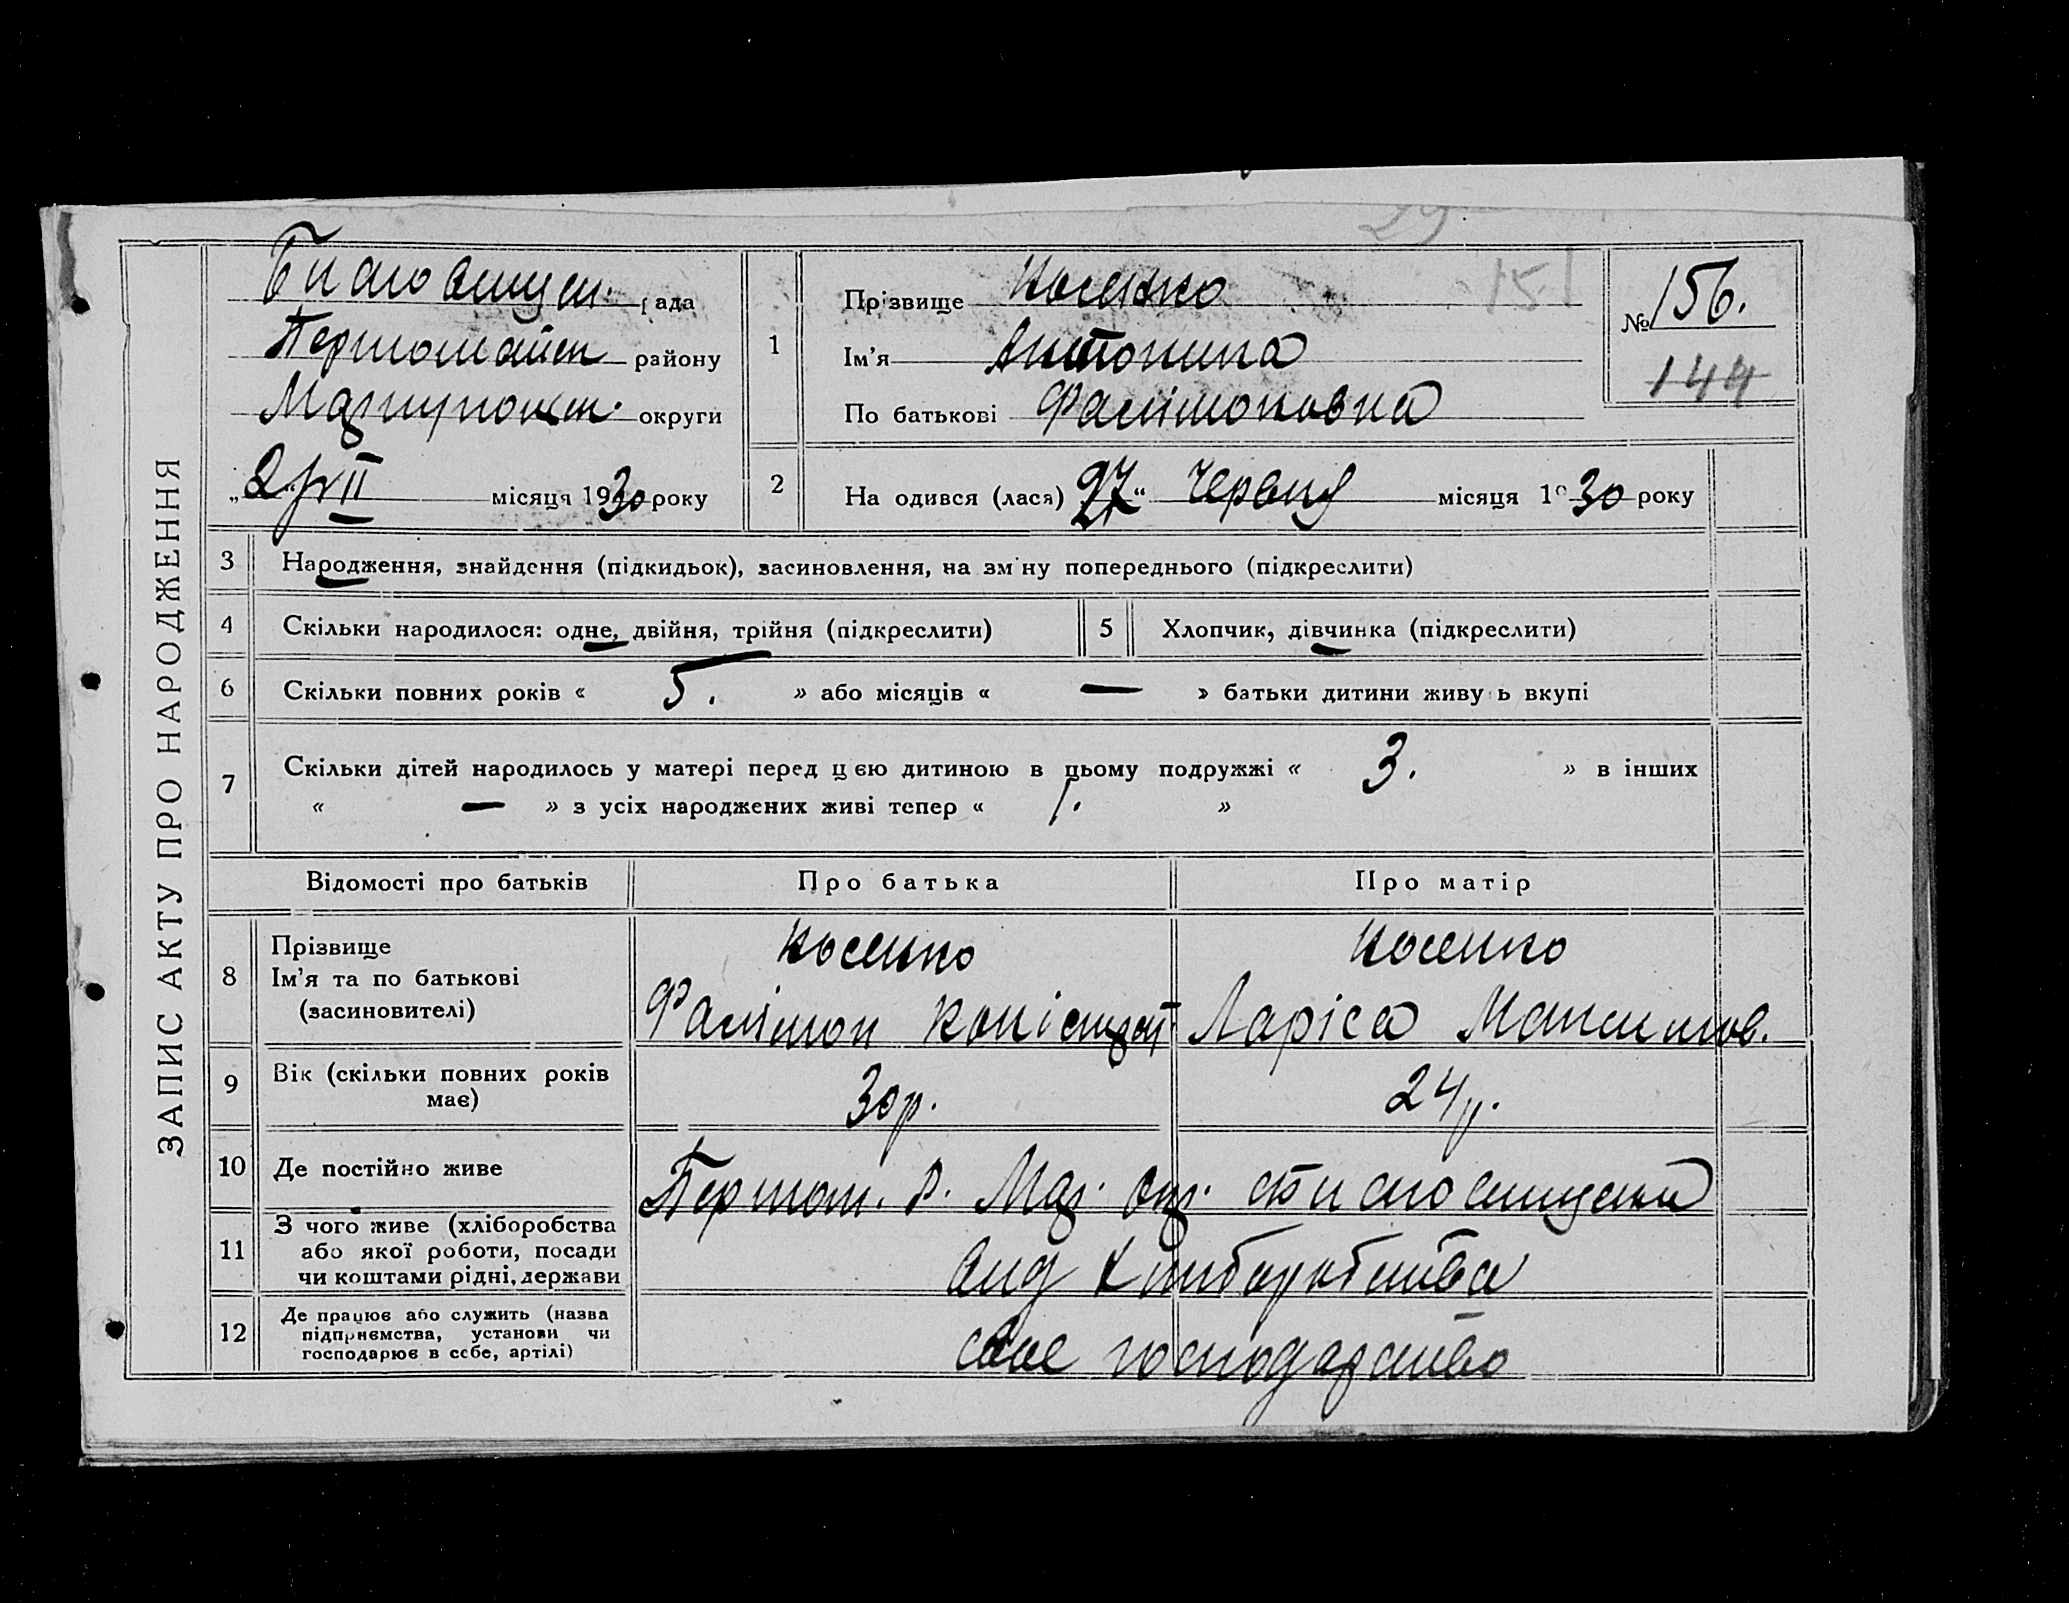 ЗАПИС АКТУ ПРО НАРОДЖЕННЯ
29
рада
Першомайськ району
Маріупольськ. округи
„2“ VII місяця 1930 року
1
Прізвище Косенко
151
Ім'я Антонина
По батькові Филімоновна
№ 156.
144
2
На одився (лася) 27“ Червня місяця 1930 року
3 Народження, знайдення (підкидьок), засиновлення, на зміну попереднього (підкреслити)
4 Скільки народилося: одне, двійня, трійня (підкреслити)
5 Хлопчик, дівчинка (підкреслити)
6 Скільки повних років « 5. » або місяців « — » батьки дитини живуть вкупі
7 Скільки дітей народилось у матері перед цією дитиною в цьому подружжі « 3. » в інших
« — » з усіх народжених живі тепер « 1. »
Відомості про батьків Про батька Про матір
8 Прізвище
Ім'я та по батькові
(засиновителі)
Косенко
Филімон
Косенко
Ларіса Максимов.
9 Вік (скільки повних років
має)
30р.
24р.
10 Де постійно живе
Першом. р. Мар. окр.
11 З чого живе (хліборобства
або якої роботи, посади
чи коштами рідні, держави
від хліборобства
12 Де працює або служить (назва
підприємства, установи чи
господарює в себе, артілі)
своє господарство